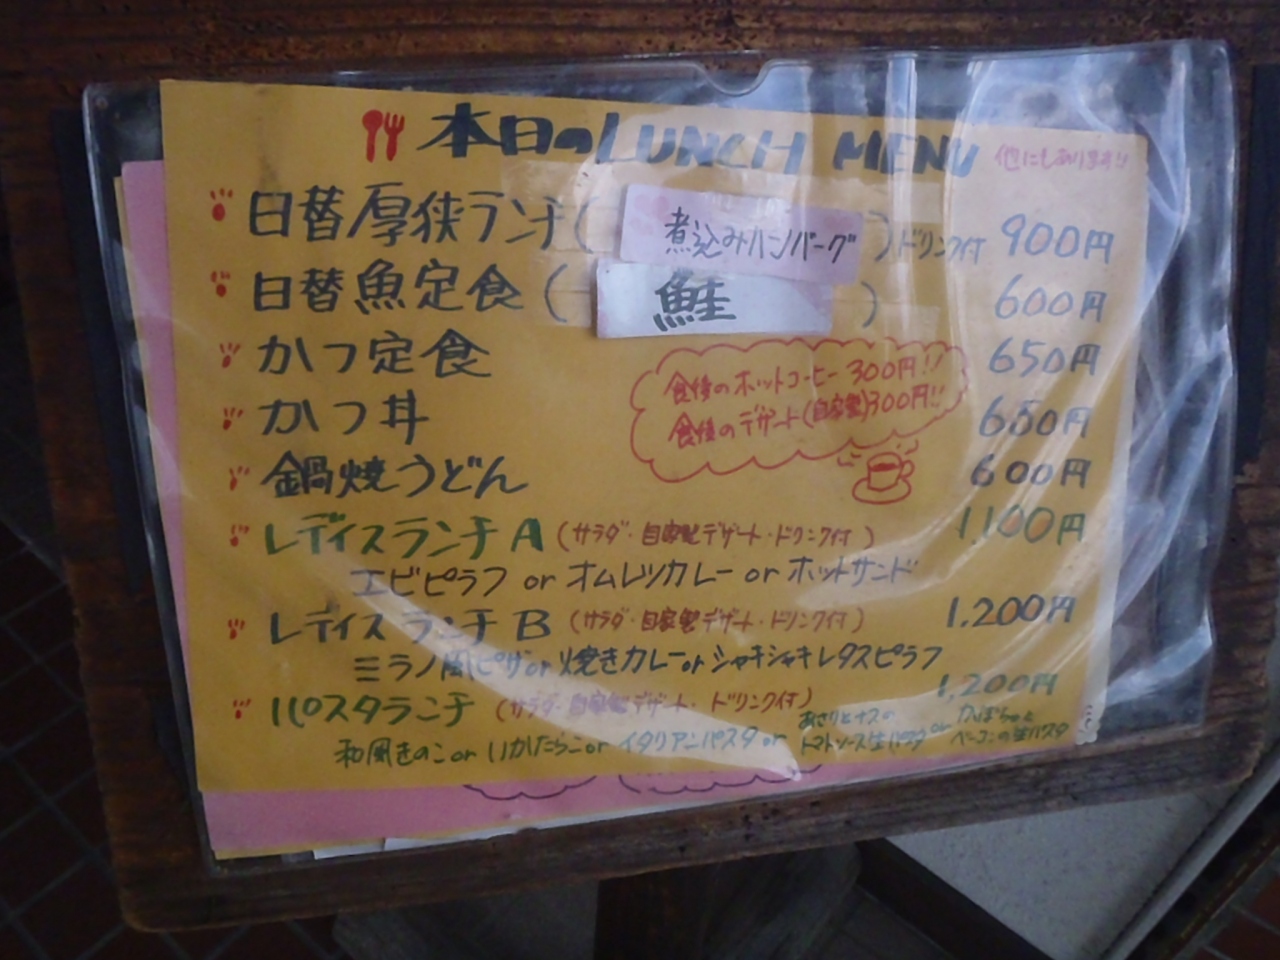 本日のLUNCH MENU 他にもあります!!
日替厚狭ランチ(煮込みハンバーグ)ドリンク付 900円
日替魚定食(鮭) 600円
かつ定食 650円
かつ丼 650円
食後のホットコーヒー300円!!
食後のデザート(自家製)300円!!
鍋焼うどん 600円
レディスランチA(サラダ・自家製デザート・ドリンク付) 1,100円
エビピラフ or オムレツカレー or ホットサンド
レディスランチB(サラダ・自家製デザート・ドリンク付) 1,200円
ミラノ風ピザor焼きカレーorシャキシャキレタスピラフ
パスタランチ(サラダ・自家製デザート・ドリンク付) 1,200円
和風きのこ or いかたらこ or イタリアンパスタ or あさりとナスのトマトソース生パスタ or かぼちゃとベーコンの生パスタ